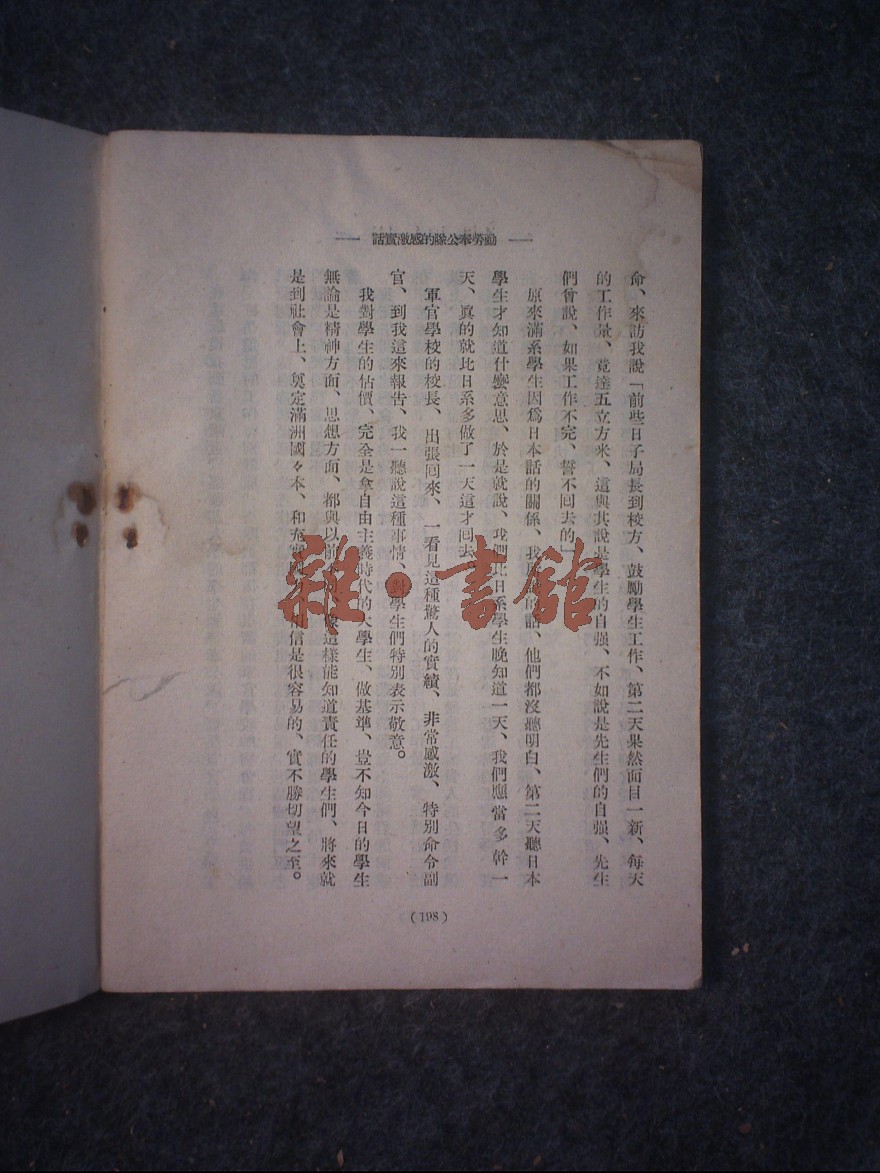 — 勤勞奉公隊的感激實話 —
命、來訪我說「前些日子局長到校方、鼓勵學生工作、第二天果然面目一新、每天
的工作量、竟達五立方米、這與其說是學生的自强、不如說是先生們的自强、先生
們會說、如果工作不完、誓不回去的」
原來滿系學生因爲日本話的關係、我 的話、他們都沒聽明白、第二天聽日本
學生才知道什麽意思、於是就說、我們比日系學生晚知道一天、我們應當多幹一
天、眞的就比日系多做了一天這才回去。
軍官學校的校長、出張回來、一看見這種驚人的實績、非常感激、特別命令副
官、到我這來報告、我一聽說這種事情、對學生們特別表示敬意。
我對學生的估價、完全是拿自由主義時代的大學生、做基準、豈不知今日的學生
無論是精神方面、思想方面、都與以前 這樣能知道責任的學生們、將來就
是到社會上、奠定滿洲國々本、和充實 信是很容易的、實不勝切望之至。
(198)
雜·書館